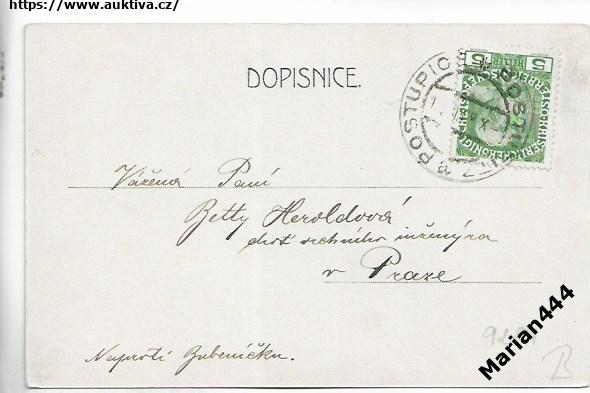 https://www.auktiva.cz/
DOPISNICE.
5 5
POSTUPICE
Vážená Paní
Betty Heroldová
choť vrchního inženýra
v Praze
Naproti Bubeníčku.
Marian444
B